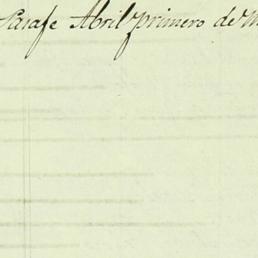 Pasaje Abril primero de